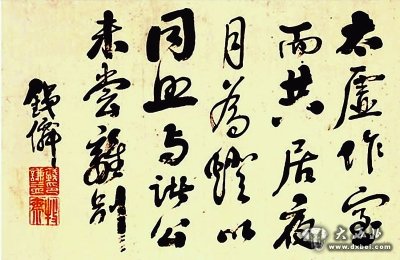 太虛作室
而共居夜
月為燈以
同照与諸公
未嘗離別
大西北
www.dxbei.com